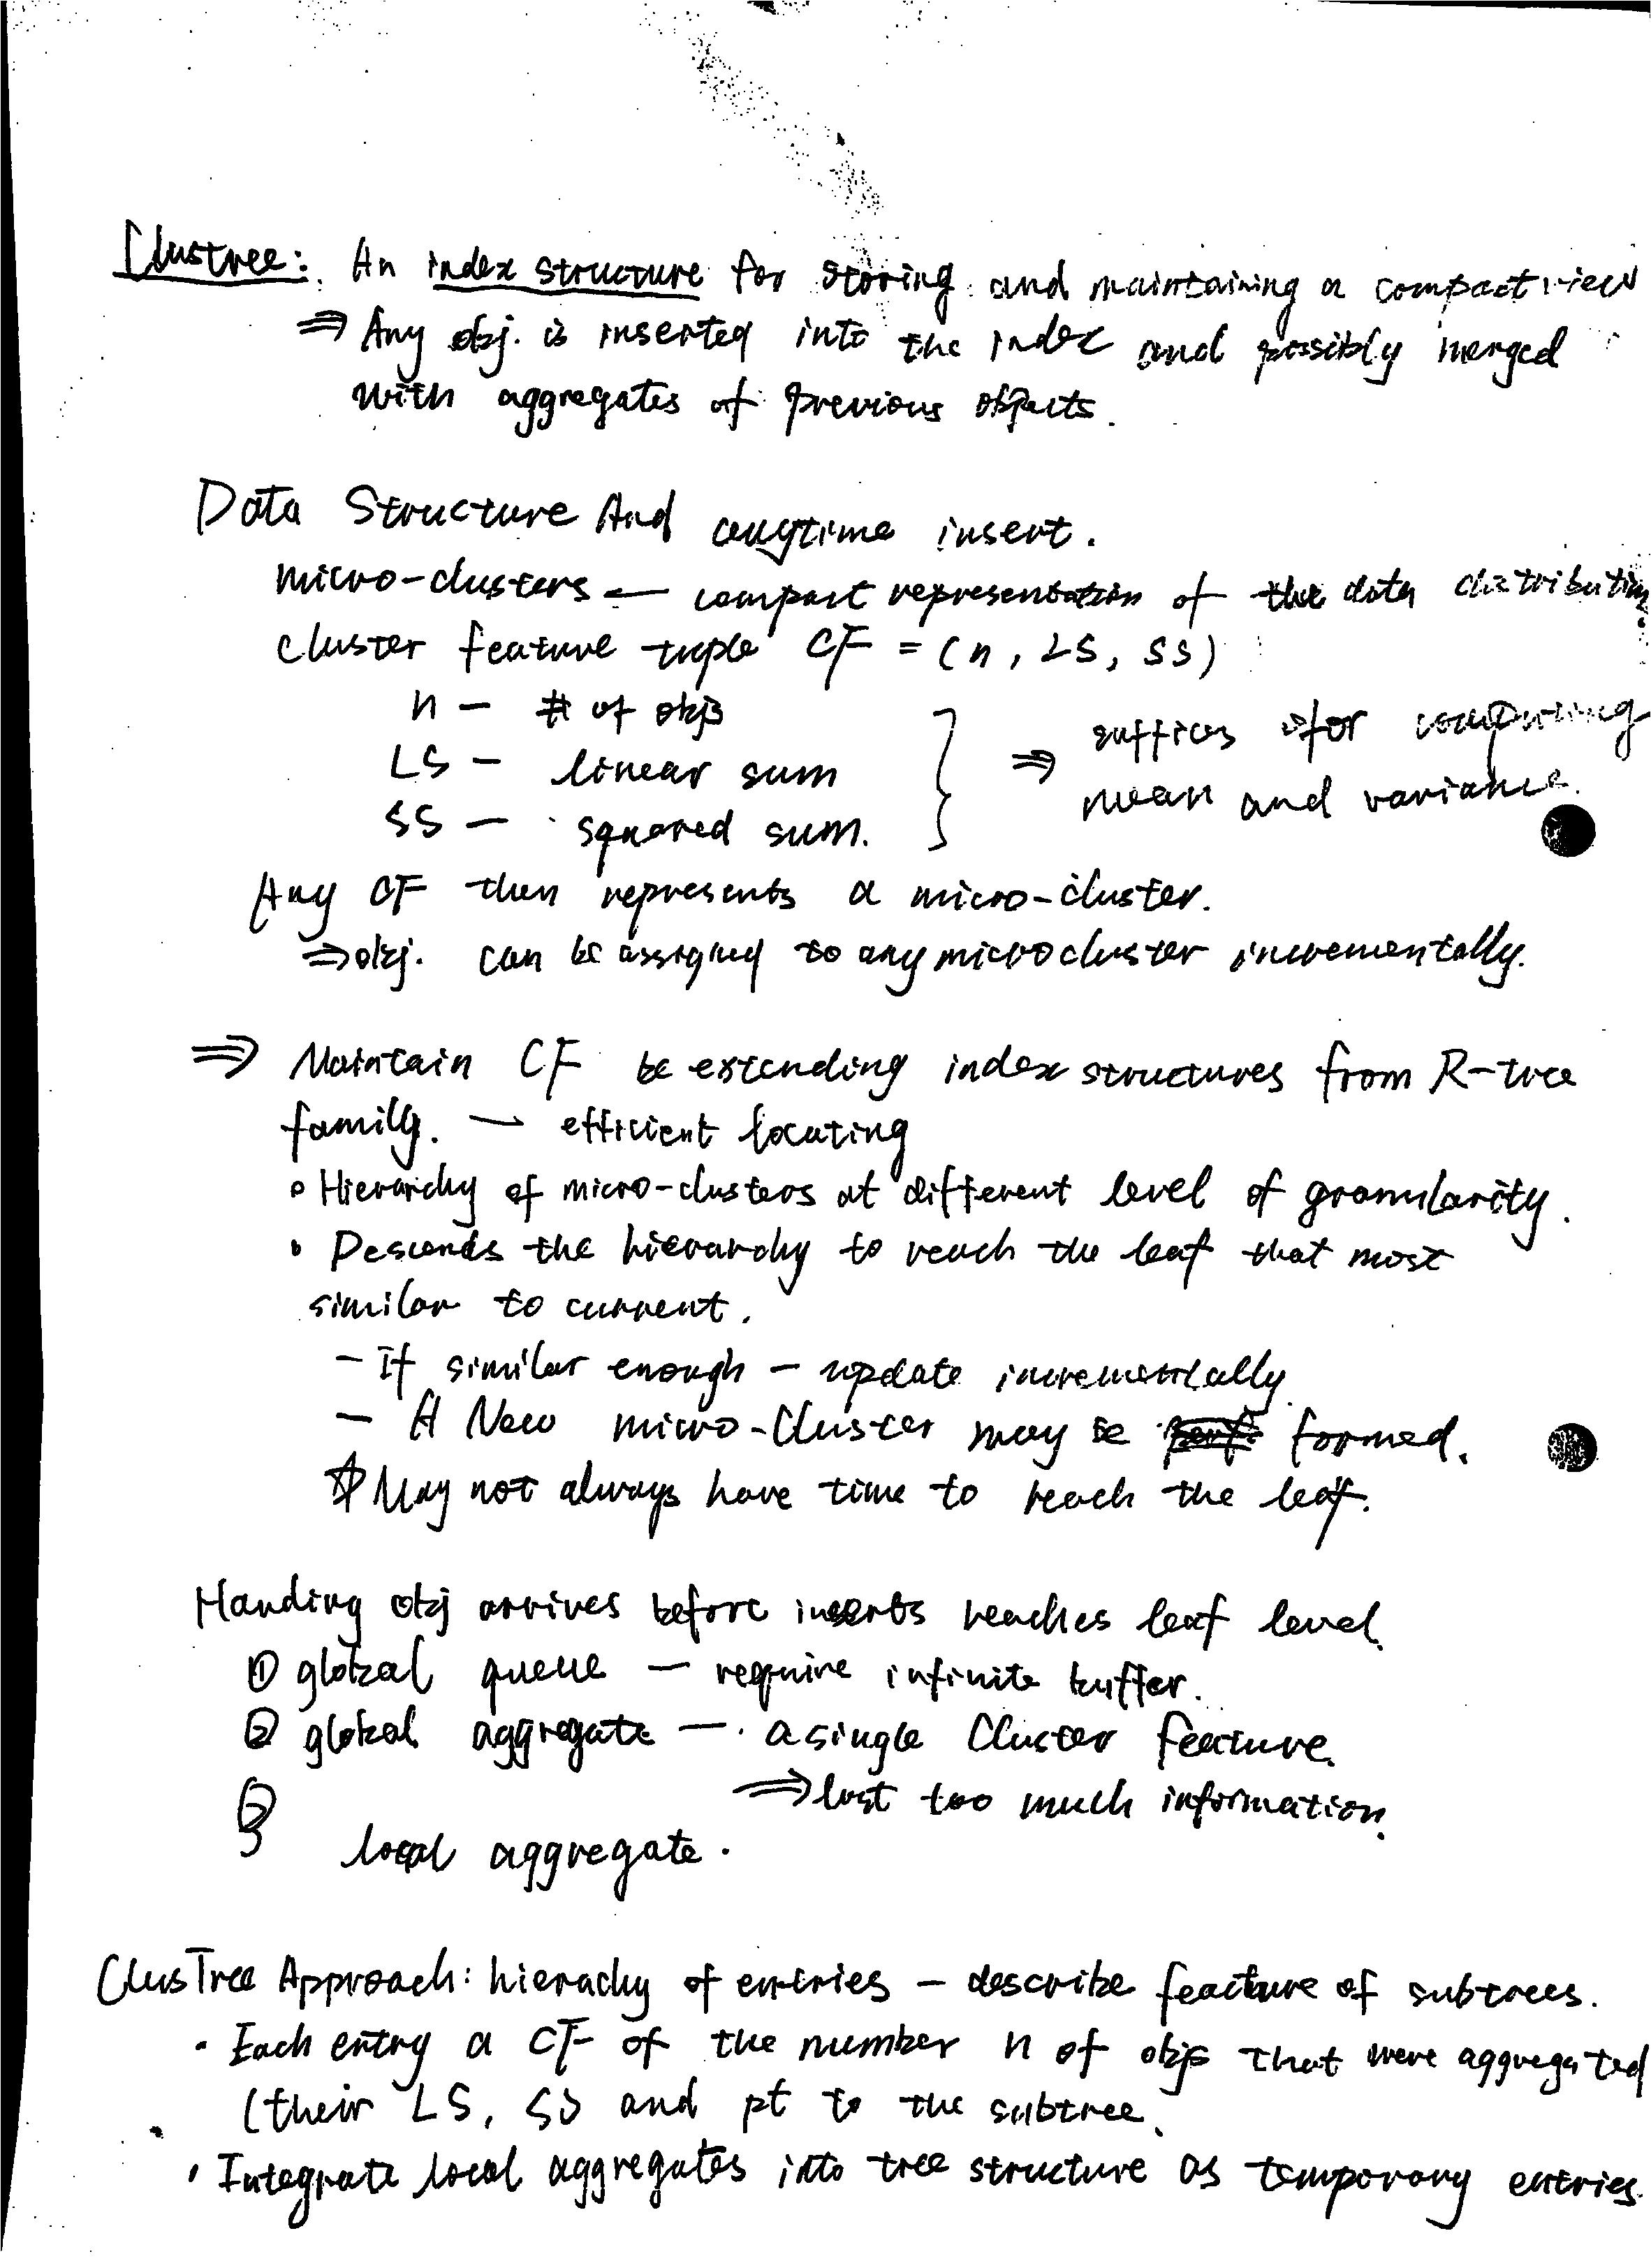 Clustree: An index structure for storing and maintaining a compact view
⇒ Any obj. is inserted into the index and possibly merged
with aggregates of previous objects.
Data Structure And anytime insert.
micro-clusters — compact representation of the data distribution
cluster feature tuple CF = (n, LS, SS)
n — # of objs
LS — linear sum
SS — squared sum.
⇒ suffices for computing
mean and variance.
Any CF then represents a micro-cluster.
⇒ obj. can be assigned to any microcluster incrementally.
⇒ Maintain CF be extending index structures from R-tree
family. — efficient locating
• Hierarchy of micro-clusters at different level of granularity.
• Descends the hierarchy to reach the leaf that most
similar to current.
— If similar enough — update incrementally.
— A New micro-Cluster may be formed.
☆ May not always have time to reach the leaf.
Handing obj arrives before inserts reaches leaf level.
① global queue — require infinite buffer.
② global aggregate — a single Cluster feature.
⇒ lost too much information.
③ local aggregate.
ClusTree Approach: hierachy of entries — describe feature of subtrees.
• Each entry a CF of the number n of objs that were aggregated
(their LS, SS and pt to the subtree.
• Integrate local aggregates into tree structure as temporary entries.